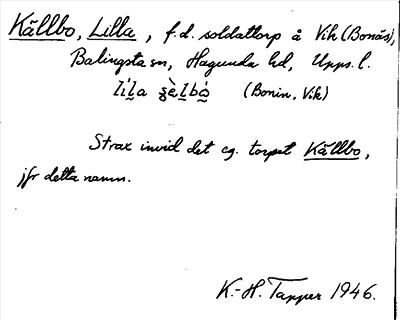 Källbo, Lilla, f.d. soldattorp å Vik (Bonäs),
Balingsta sn, Hagunda hd, Upps. l.
líl̰a ʂèl̰bó̰ (Bonin, Vik)
Strax invid det eg. torpet Källbo,
jfr detta namn.
K.-H. Tapper 1946.